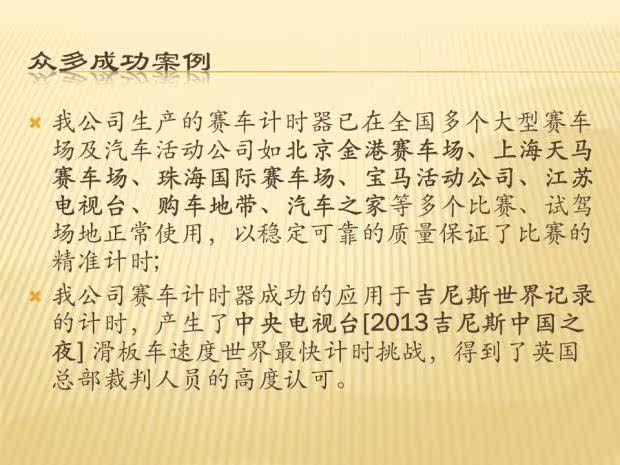 众多成功案例
我公司生产的赛车计时器已在全国多个大型赛车
场及汽车活动公司如北京金港赛车场、上海天马
赛车场、珠海国际赛车场、宝马活动公司、江苏
电视台、购车地带、汽车之家等多个比赛、试驾
场地正常使用，以稳定可靠的质量保证了比赛的
精准计时;
我公司赛车计时器成功的应用于吉尼斯世界记录
的计时，产生了中央电视台[2013吉尼斯中国之
夜] 滑板车速度世界最快计时挑战，得到了英国
总部裁判人员的高度认可。